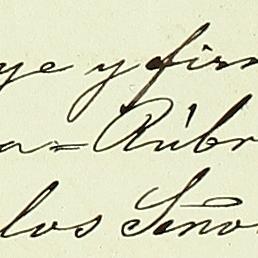 ye y fir
a = Rúbr
los Seño